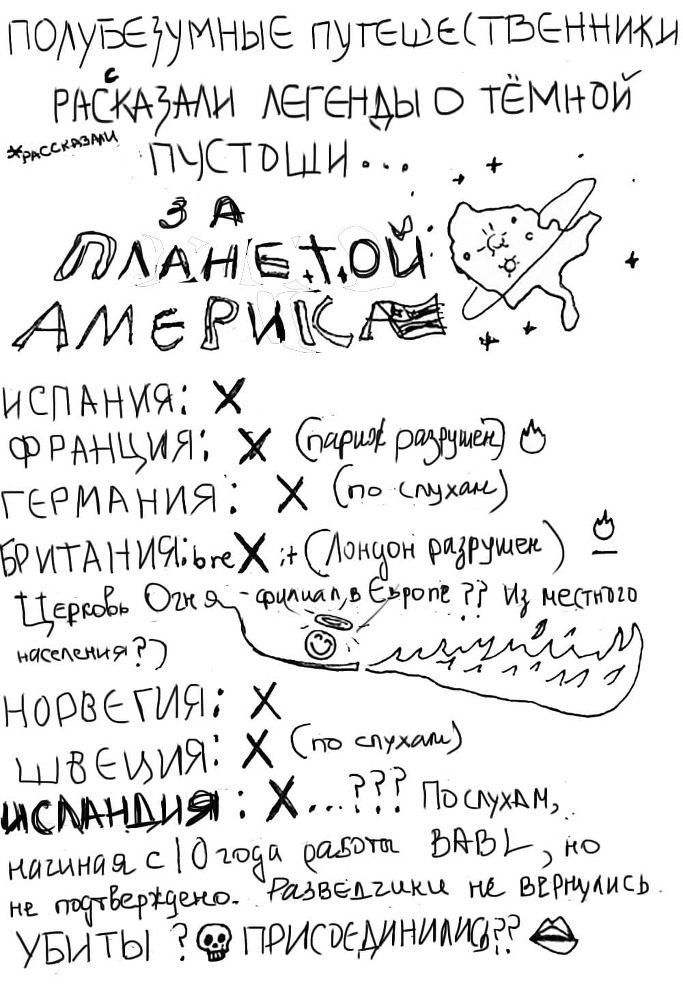 ПОЛУБЕЗУМНЫЕ ПУТЕШЕСТВЕННИКИ
РАСКАЗАЛИ ЛЕГЕНДЫ О ТЁМНОЙ
с
*РАССКАЗАЛИ
ПУСТОШИ...
ЗА
ПЛАНЕТОЙ
АМЕРИКА
ИСПАНИЯ: X
ФРАНЦИЯ: X (париж разрушен)
ГЕРМАНИЯ: X (по слухам)
БРИТАНИЯ: breX:t (Лондон разрушен)
Церковь Огня - филиал, в Европе?? Из местного
населения?)
НОРВЕГИЯ: X
ШВЕЦИЯ: X (по слухам)
ИСЛАНДИЯ: X...??? По слухам,
начиная с 10 года работы BABL, но
не подтверждено. Разведчики не вернулись.
УБИТЫ? ПРИСОЕДИНИЛИСЬ??